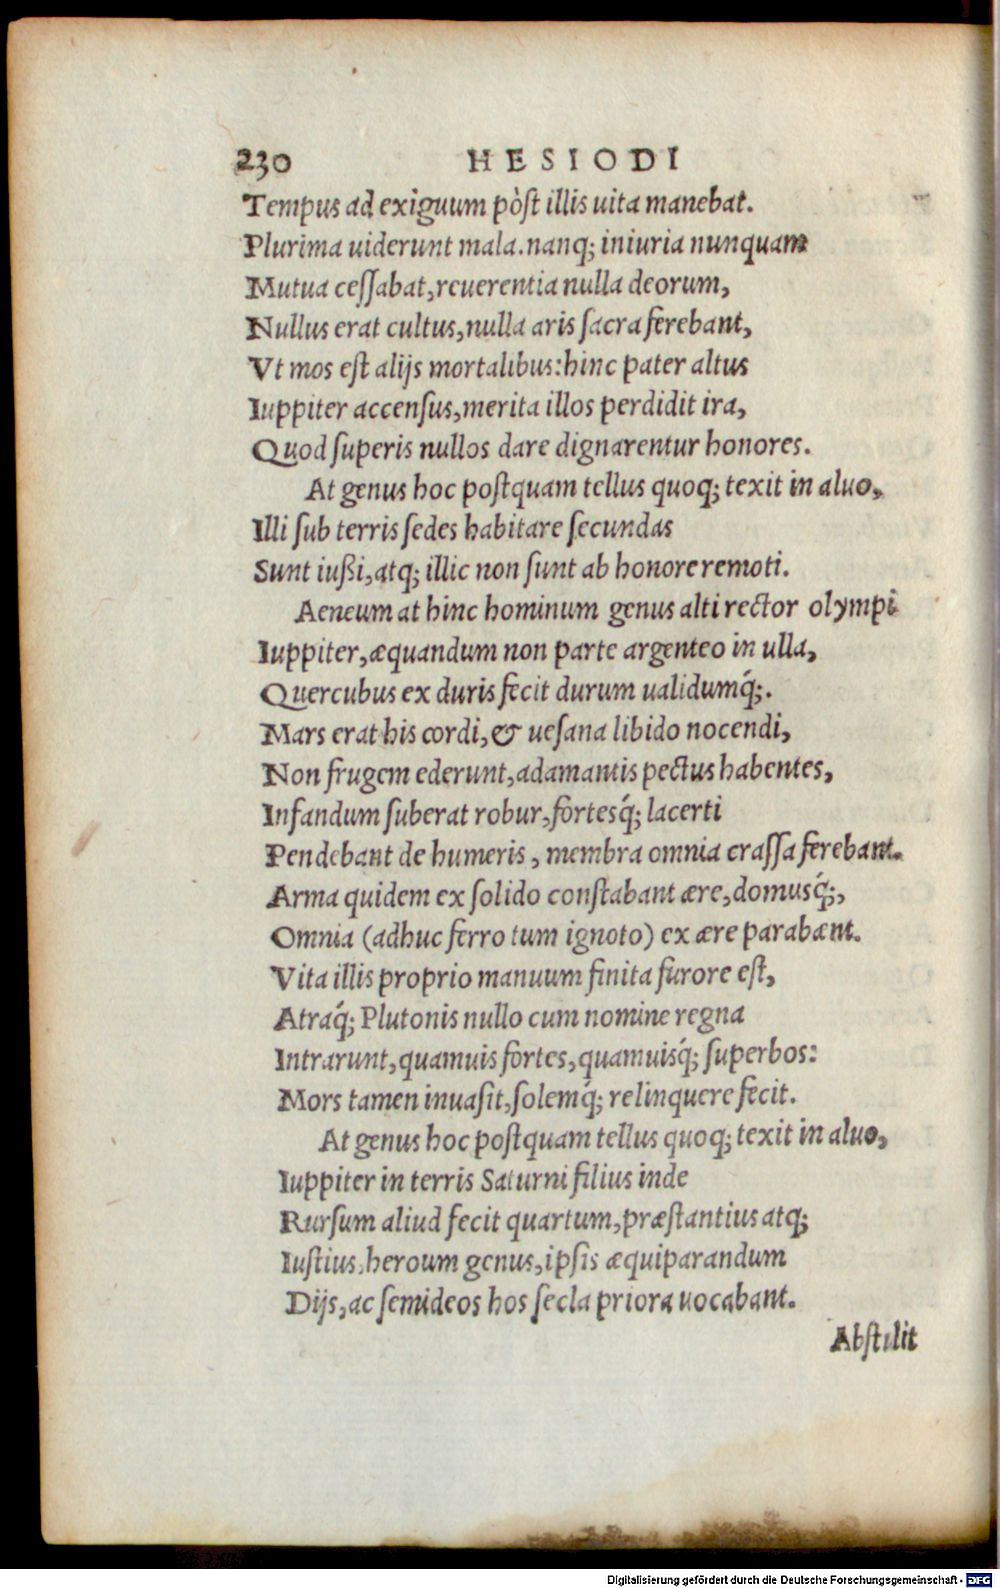 230 HESIODI
Tempus ad exiguum pòſt illis uita manebat.
Plurima uiderunt mala. nanq; iniuria nunquam
Mutua ceſſabat, reuerentia nulla deorum,
Nullus erat cultus, nulla aris ſacra ferebant,
Vt mos eſt alijs mortalibus: hinc pater altus
Iuppiter accenſus, merita illos perdidit ira,
Quod ſuperis nullos dare dignarentur honores.
At genus hoc poſtquam tellus quoq; texit in aluo,
Illi ſub terris ſedes habitare ſecundas
Sunt iußi, atq; illic non ſunt ab honore remoti.
Aeneum at hinc hominum genus alti rector olympi
Iuppiter, æquandum non parte argenteo in ulla,
Quercubus ex duris fecit durum ualidumq́;.
Mars erat his cordi, & ueſana libido nocendi,
Non frugem ederunt, adamantis pectus habentes,
Infandum ſuberat robur, fortesq́; lacerti
Pendebant de humeris, membra omnia craſſa ferebant.
Arma quidem ex ſolido conſtabant ære, domusq́;,
Omnia (adhuc ferro tum ignoto) ex ære parabænt.
Vita illis proprio manuum finita furore eſt,
Atraq́; Plutonis nullo cum nomine regna
Intrarunt, quamuis fortes, quamuisq́; ſuperbos:
Mors tamen inuaſit, ſolemq́; relinquere fecit.
At genus hoc poſtquam tellus quoq; texit in aluo,
Iuppiter in terris Saturni filius inde
Rurſum aliud fecit quartum, præſtantius atq;
Iuſtius, heroum genus, ipſis æquiparandum
Dijs, ac ſemideos hos ſecla priora uocabant.
Abſtulit
Digitalisierung gefördert durch die Deutsche Forschungsgemeinschaft - DFG